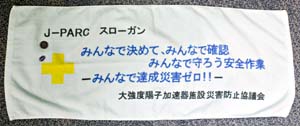 J-PARC スローガン
みんなで決めて、みんなで確認
みんなで守ろう安全作業
－みんなで達成災害ゼロ!!－
大強度陽子加速器施設災害防止協議会